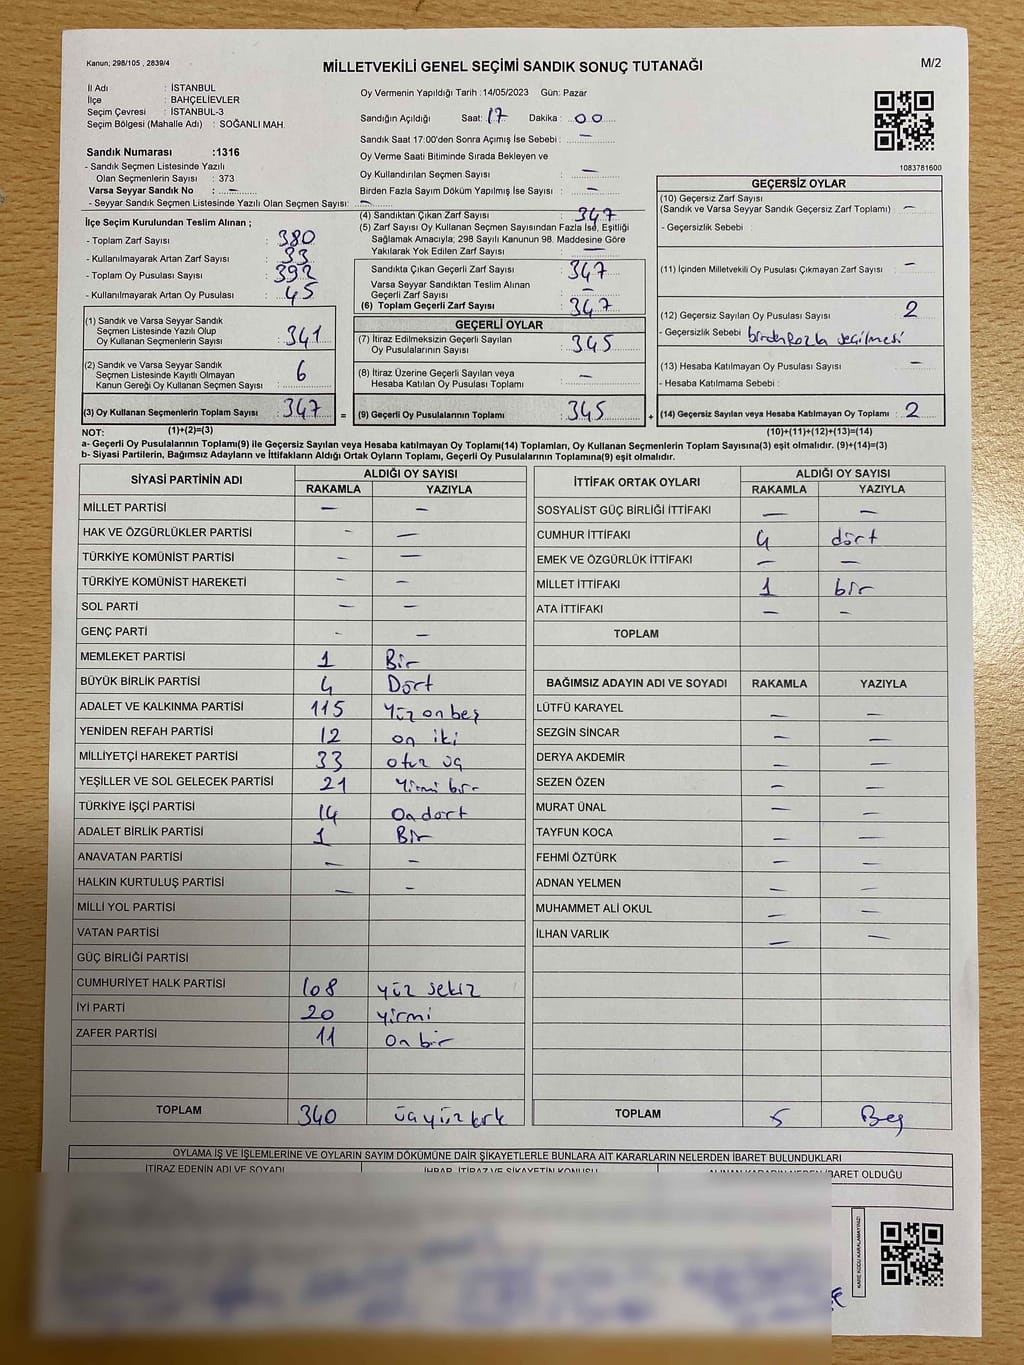 Kanun; 298/105 , 2839/4
MİLLETVEKİLİ GENEL SEÇİMİ SANDIK SONUÇ TUTANAĞI
M/2
İl Adı : İSTANBUL
İlçe : BAHÇELİEVLER
Seçim Çevresi : İSTANBUL-3
Seçim Bölgesi (Mahalle Adı) : SOĞANLI MAH.
Sandık Numarası :1316
- Sandık Seçmen Listesinde Yazılı
Olan Seçmenlerin Sayısı : 373
Varsa Seyyar Sandık No : —
- Seyyar Sandık Seçmen Listesinde Yazılı Olan Seçmen Sayısı: —
Oy Vermenin Yapıldığı Tarih :14/05/2023 Gün: Pazar
Sandığın Açıldığı Saat: 17 Dakika : 00
Sandık Saat 17:00'den Sonra Açımış İse Sebebi : —
Oy Verme Saati Bitiminde Sırada Bekleyen ve
Oy Kullandırılan Seçmen Sayısı : —
Birden Fazla Sayım Döküm Yapılmış İse Sayısı : —
1083781600
İlçe Seçim Kurulundan Teslim Alınan ;
- Toplam Zarf Sayısı : 380
- Kullanılmayarak Artan Zarf Sayısı : 33
- Toplam Oy Pusulası Sayısı : 392
- Kullanılmayarak Artan Oy Pusulası : 45
(1) Sandık ve Varsa Seyyar Sandık
Seçmen Listesinde Yazılı Olup
Oy Kullanan Seçmenlerin Sayısı : 341
(2) Sandık ve Varsa Seyyar Sandık
Seçmen Listesinde Kayıtlı Olmayan
Kanun Gereği Oy Kullanan Seçmen Sayısı : 6
(3) Oy Kullanan Seçmenlerin Toplam Sayısı : 347 =
(4) Sandıktan Çıkan Zarf Sayısı : 347
(5) Zarf Sayısı Oy Kullanan Seçmen Sayısından Fazla İse, Eşitliği
Sağlamak Amacıyla; 298 Sayılı Kanunun 98. Maddesine Göre
Yakılarak Yok Edilen Zarf Sayısı : —
Sandıkta Çıkan Geçerli Zarf Sayısı : 347
Varsa Seyyar Sandıktan Teslim Alınan
Geçerli Zarf Sayısı : —
(6) Toplam Geçerli Zarf Sayısı : 347
GEÇERLİ OYLAR
(7) İtiraz Edilmeksizin Geçerli Sayılan
Oy Pusulalarının Sayısı : 345
(8) İtiraz Üzerine Geçerli Sayılan veya
Hesaba Katılan Oy Pusulası Toplamı : —
(9) Geçerli Oy Pusulalarının Toplamı : 345 +
GEÇERSİZ OYLAR
(10) Geçersiz Zarf Sayısı
(Sandık ve Varsa Seyyar Sandık Geçersiz Zarf Toplamı) : —
- Geçersizlik Sebebi :
(11) İçinden Milletvekili Oy Pusulası Çıkmayan Zarf Sayısı : —
(12) Geçersiz Sayılan Oy Pusulası Sayısı : 2
- Geçersizlik Sebebi : birden fazla seçilmesi
(13) Hesaba Katılmayan Oy Pusulası Sayısı : —
- Hesaba Katılmama Sebebi :
(14) Geçersiz Sayılan veya Hesaba Katılmayan Oy Toplamı : 2
NOT: (1)+(2)=(3) (10)+(11)+(12)+(13)=(14)
a- Geçerli Oy Pusulalarının Toplamı(9) ile Geçersiz Sayılan veya Hesaba katılmayan Oy Toplamı(14) Toplamları, Oy Kullanan Seçmenlerin Toplam Sayısına(3) eşit olmalıdır. (9)+(14)=(3)
b- Siyasi Partilerin, Bağımsız Adayların ve İttifakların Aldığı Ortak Oyların Toplamı, Geçerli Oy Pusulalarının Toplamına(9) eşit olmalıdır.
SİYASİ PARTİNİN ADI ALDIĞI OY SAYISI
RAKAMLA YAZIYLA
MİLLET PARTİSİ — —
HAK VE ÖZGÜRLÜKLER PARTİSİ - —
TÜRKİYE KOMÜNİST PARTİSİ - —
TÜRKİYE KOMÜNİST HAREKETİ - —
SOL PARTİ — —
GENÇ PARTİ - —
MEMLEKET PARTİSİ 1 Bir
BÜYÜK BİRLİK PARTİSİ 4 Dört
ADALET VE KALKINMA PARTİSİ 115 Yüz on beş
YENİDEN REFAH PARTİSİ 12 on iki
MİLLİYETÇİ HAREKET PARTİSİ 33 otuz üç
YEŞİLLER VE SOL GELECEK PARTİSİ 21 Yirmi bir
TÜRKİYE İŞÇİ PARTİSİ 14 On dört
ADALET BİRLİK PARTİSİ 1 Bir
ANAVATAN PARTİSİ — —
HALKIN KURTULUŞ PARTİSİ — -
MİLLİ YOL PARTİSİ
VATAN PARTİSİ
GÜÇ BİRLİĞİ PARTİSİ
CUMHURİYET HALK PARTİSİ 108 yüz sekiz
İYİ PARTİ 20 yirmi
ZAFER PARTİSİ 11 On bir
TOPLAM 340 üçyüz kırk
İTTİFAK ORTAK OYLARI ALDIĞI OY SAYISI
RAKAMLA YAZIYLA
SOSYALİST GÜÇ BİRLİĞİ İTTİFAKI — —
CUMHUR İTTİFAKI 4 dört
EMEK VE ÖZGÜRLÜK İTTİFAKI — —
MİLLET İTTİFAKI 1 bir
ATA İTTİFAKI — -
TOPLAM
BAĞIMSIZ ADAYIN ADI VE SOYADI RAKAMLA YAZIYLA
LÜTFÜ KARAYEL — —
SEZGİN SİNCAR — —
DERYA AKDEMİR — —
SEZEN ÖZEN — —
MURAT ÜNAL — —
TAYFUN KOCA — —
FEHMİ ÖZTÜRK — —
ADNAN YELMEN — —
MUHAMMET ALİ OKUL — —
İLHAN VARLIK — —
TOPLAM 5 Beş
OYLAMA İŞ VE İŞLEMLERİNE VE OYLARIN SAYIM DÖKÜMÜNE DAİR ŞİKAYETLERLE BUNLARA AİT KARARLARIN NELERDEN İBARET BULUNDUKLARI
İTİRAZ EDENİN ADI VE SOYADI İHBAR, İTİRAZ VE ŞİKAYETİN KONUSU ALINAN KARARIN NEDEN İBARET OLDUĞU
KARE KODU KARALAMAYINIZ!